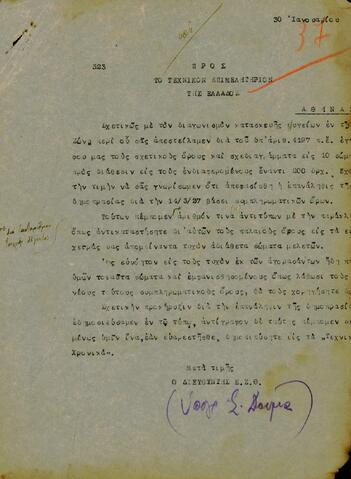 30 Ἰανοαρίου
37
323
ΠΡΟΣ
ΤΟ ΤΕΧΝΙΚΟΝ ΕΠΙΜΕΛΗΤΗΡΙΟΝ
ΤΗΣ ΕΛΛΑΔΟΣ
ΑΘΗΝΑΣ
Σχετικῶς μὲ τὸν διαγωνισμὸν κατασκευῆς ψυγείων ἐν τῇ
Ζώνῃ περὶ οὗ σᾶς ἀπεστείλαμεν διὰ τοῦ ὑπ' ἀριθ. 4197 π.ἔ. ἐγ
σου μας τοὺς σχετικοὺς ὅρους καὶ σχεδιαγράμματα εἰς 10 σώμ
πρὸς διάθεσιν εἰς τοὺς ἐνδιαφερομένους ἔναντι 200 δρχ. ἔχο
τὴν τιμὴν νὰ σᾶς γνωρίσωμεν ὅτι ἀπεφασίσθη ἡ ἐπανάληψις τῆς
δημοπρασίας διὰ τὴν 14/3/37 βάσει συμπληρωματικῶν ὅρων.
Τούτων πέμπομεν ἀριθμὸν τινὰ ἀντιτύπων μὲ τὴν παράκλ
ὅπως ἀντικαταστήσητε δι' αὐτῶν τοὺς παλαιοὺς ὅρους εἰς τὰ εἰ
χεῖρας σας ἀπομείναντα τυχὸν ἀδιάθετα σώματα μελετῶν.
Ὡς εὐνόητον εἰς τοὺς τυχὸν ἐκ τῶν ἀγορασάντων ἤδη π
ὑμῶν τοιαῦτα σώματα καὶ ἐμφανισθησομένους ὅπως λάβωσι τοὺς
νέους τούτους συμπληρωματικοὺς ὅρους, θὰ τοὺς χορηγήσητε ἀ
Σχετικὴν προκήρυξιν διὰ τὴν ἐπανάληψιν τῆς δημοπρασία
ἐδημοσιεύσαμεν ἐν τῷ τύπῳ, ἀντίγραφον δὲ ταύτης πέμπομεν
μένως ὑμῖν ἵνα, ἐὰν εὐαρεστῆσθε, δημοσιεύσητε εἰς τὰ «Τεχνικ
Χρονικά».
Μετὰ τιμῆς
Ο ΔΙΕΥΘΥΝΤΗΣ Ε.Ζ.Θ.